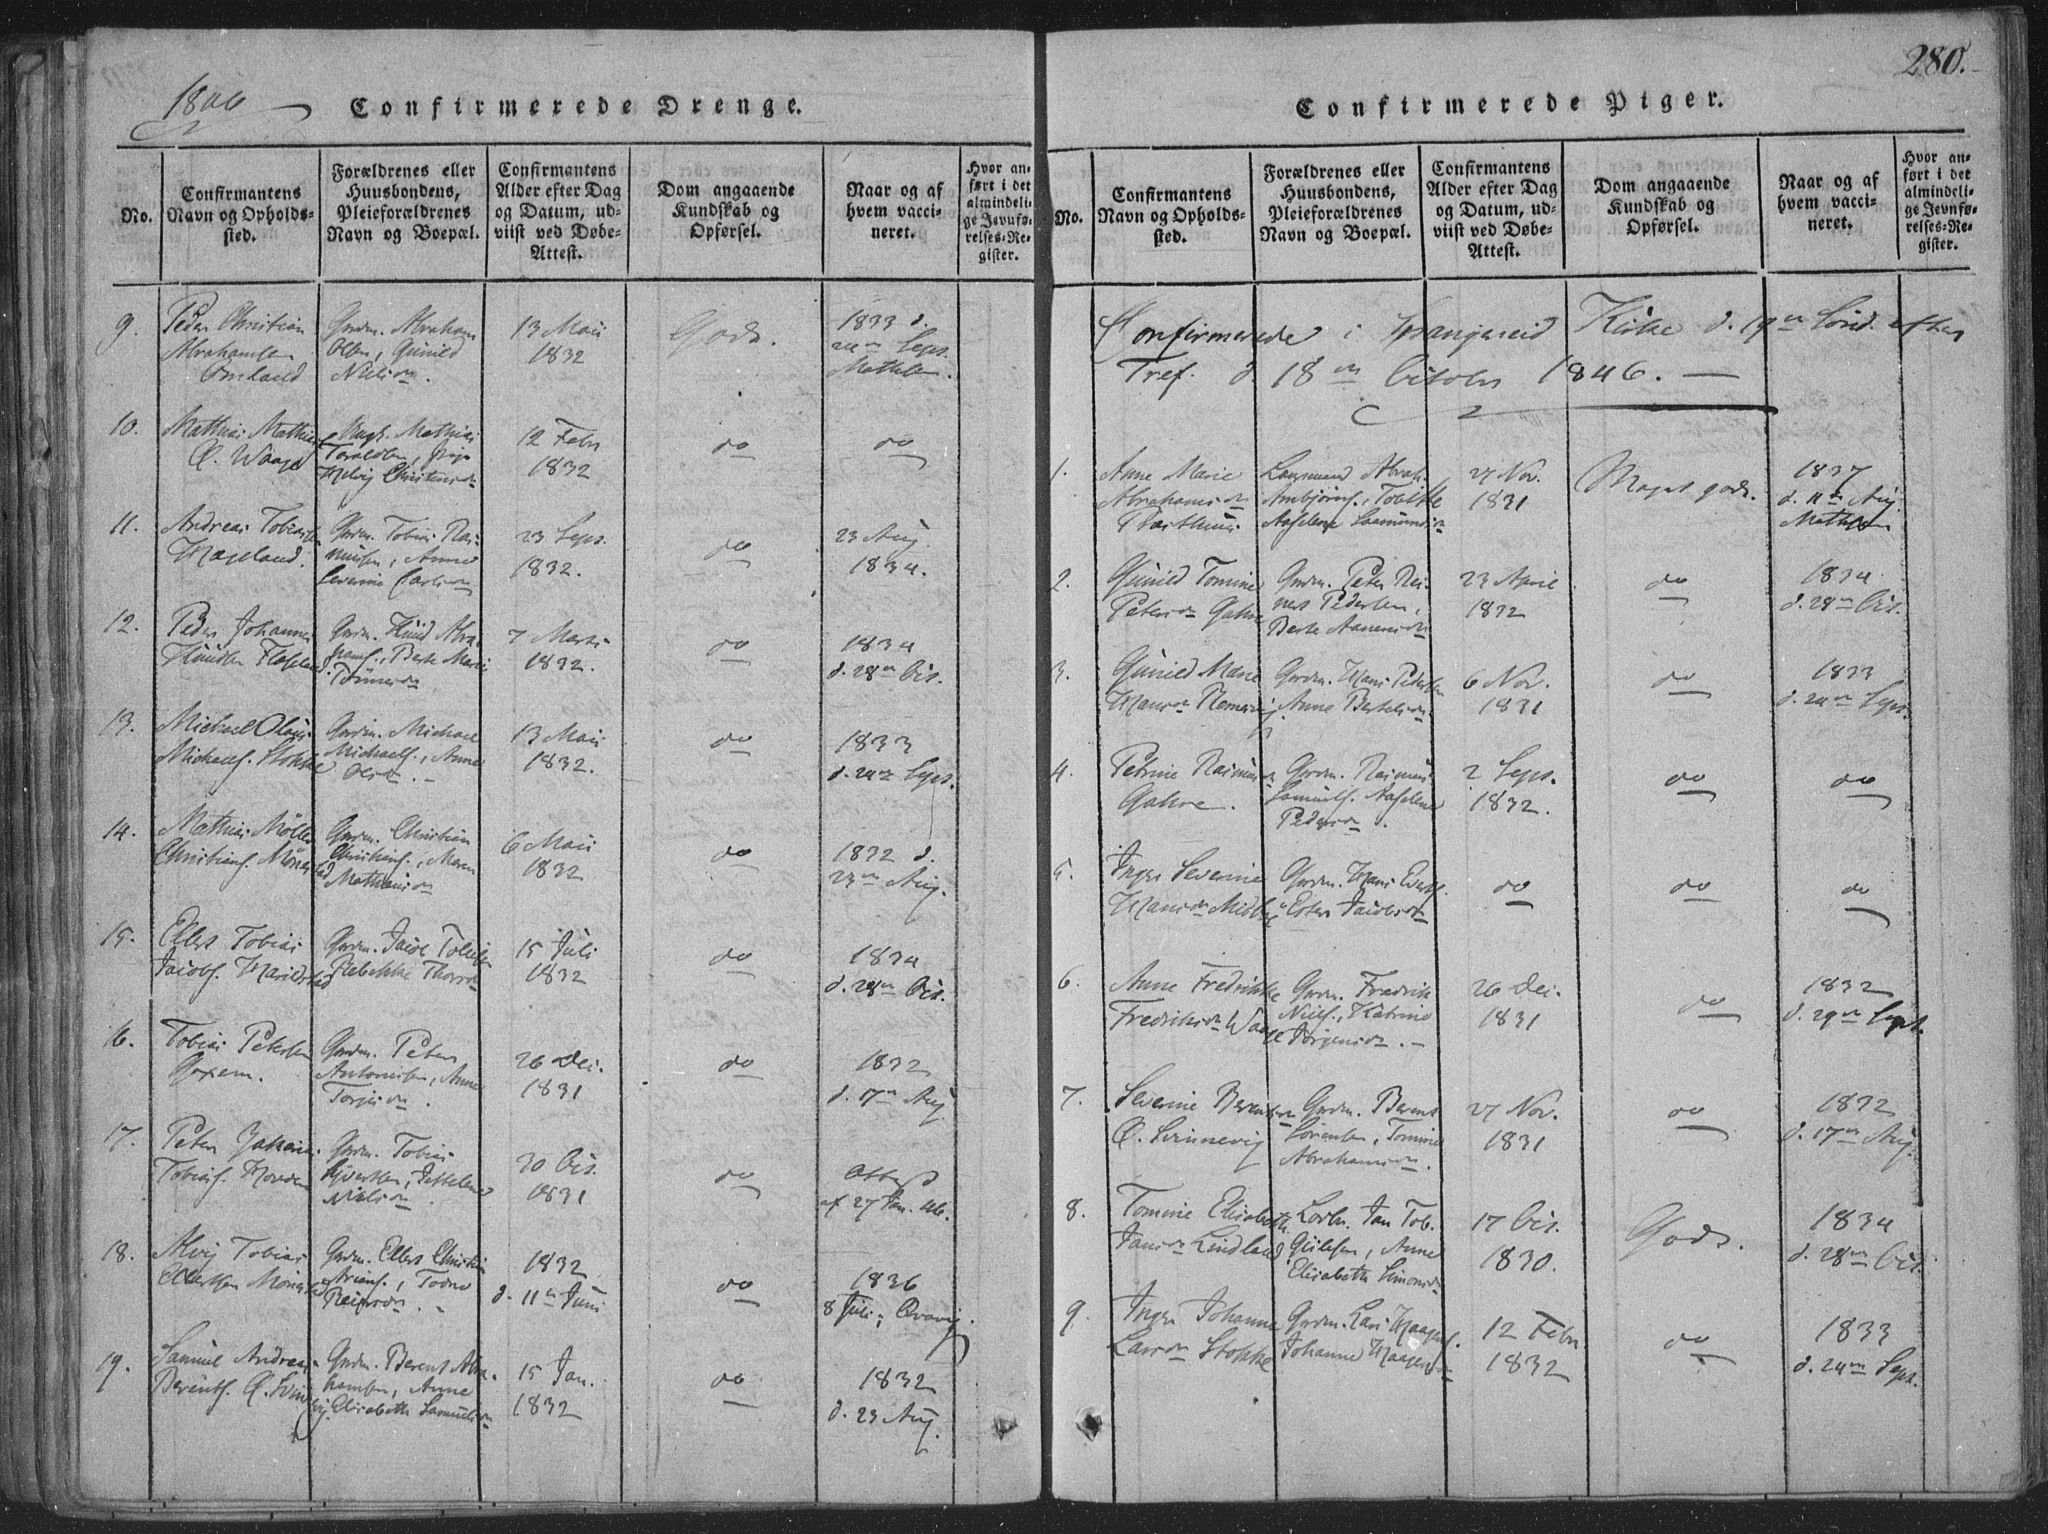 1846
Confirmerede Drenge.
No.
Confirmantens
Navn og Opholds-
sted.
Forældrenes eller
Huusbondens,
Pleieforældrenes
Navn og Boepæl.
Confirmantens
Alder efter Dag
og Datum, ud-
viist ved Døbe-
Attest.
Dom angaaende
Kundskab og
Opførsel.
Naar og af
hvem vacci-
neret.
Hvor an-
ført i det
almindeli-
ge Jevnfø-
relses-Re-
gister.
9.
Peder Christian
Abrahamsen
Omland
Gmdm. Abraham
Olsen, Gunild
Nielsdn.
13 Maii
1832
Godt.
1833 d.
24de Seps.
Mathsen.
10.
Mathias Mathias
Ø. Waage
Mathias
Taraldsen,
Christensdn
12 Febr
1832
do
do
11.
Andreas Tobiassen
Hageland.
Gmdm. Tobias Ras-
mussen, Anne
Severine Carlsdn
23 Seps.
1832.
do
23 Aug.
1834.
12.
Peder Johannes
Knudsen
Gmdm. Knud Abra-
hams., Berte Marie
Tønnesdn
7 Marts
1832.
do
1834
d. 28de Octs.
13.
Michael Olaus
Michaels. Stokke
Gmdm. Michael
Michaels., Anne
Olsdn. -
13 Maii
1832.
do
1833
d. 24de Seps.
14.
Mathias Möller
Christians. Mönnestad
Gmdm. Christian
Christians., Maren
Mathiasdn
6 Maii
1832
do
1832 d.
23de Aug.
15.
Ellert Tobias
Jacobs. Harildstad
Gmdm. Jacob Tollefsen
Rebekke Thorsdn
15 Juli
1832
do
1834
d. 28de Octs.
16.
Tobias Petersen
Goxem.
Gmdm. Peter
Antonisen, Anne
Torjusdn.
26 Dec.
1831
do
1832
d. 17de Aug
17.
Peter Johan
Tobias.
Gmdm. Tobias
Syvertsen,
Nielsdn.
30 Octs.
1831
do
Attest
af 27 Jan. 46.
18.
Alvig Tobias
Ellertsen Mönnestad
Gmdm. Ellert Christian
Arians., Tobne
Reiersdn. -
1832
d. 11te Juni
do
1836
8 Juli,
19.
Samuel Andreas
Berents. Ø. Svinevig
Gmdm. Berent Abra-
hamsen, Anne
Elisabeth Samuelsdn
15 Jan.
1832
do
1832
d. 23 Aug.
280.
Confirmerede Piger.
No.
Confirmantens
Navn og Opholds-
sted.
Forældrenes eller
Huusbondens,
Pleieforældrenes
Navn og Boepæl.
Confirmantens
Alder efter Dag
og Datum, ud-
viist ved Døbe-
Attest.
Dom angaaende
Kundskab og
Opførsel.
Naar og af
hvem vacci-
neret.
Hvor an-
ført i det
almindeli-
ge Jevnfø-
relses-Re-
gister.
Confirmerede i Spangereid Kirke d. 19de Sønd. efter
Tref. d. 18de October 1846. —
1.
Anne Marie
Abrahamsdn
Lansmand Abrah.
Ambjörns., Tobikke
Aaselene Salmundsdn
27 Nov.
1831
Meget godt.
1837
d. 11te Aug.
Mathsen
2.
Gunild Tomine
Petersdn Gahre
Gmdm. Peter Rei-
ners Pedersen,
Berte Aanensdn
23 April
1832
do
1834
d. 28de Octs.
3.
Gunild Marie
Hansdn Remesvig
Gmdm. Hans Pedersen
Anne Bertelsdn
6 Nov.
1831
do
1833
d. 24de Seps.
4.
Petrine Rasmusdn
Gahre.
Gmdm. Rasmus
Samuels. Aaselene
Pedersdn.
2 Seps.
1832.
do
do
5.
Inger Severine
Hansdn Midbøe
Gmdm. Hans Evers.
Ester Jacobsdn
do
do
do
6.
Anne Fredrikke
Fredriksdn Waage
Gmdm. Fredrik
Niels., Katrine
Jörgensdn. -
26 Dec.
1831
do
1832
d. 29de Sept.
7.
Severine Berentsdn
Ø. Svinnevig
Gmdm. Berent
Sörensen, Tomine
Abrahamsdn.
27 Nov.
1831
do
1832
d. 17de Aug.
8.
Tomine Elisabeth
Jansdn Lindland
Jan Tob.
Gulesen, Anne
Elisabeth Simonsdn
17 Octs.
1830.
Godt.
1834
d. 28de Octs.
9.
Inger Johanne
Larsdn Stokke
Gmdm. Lars Haagens.
Johanne Haagensdn
12 Febr
1832
do
1833
d. 24de Seps.